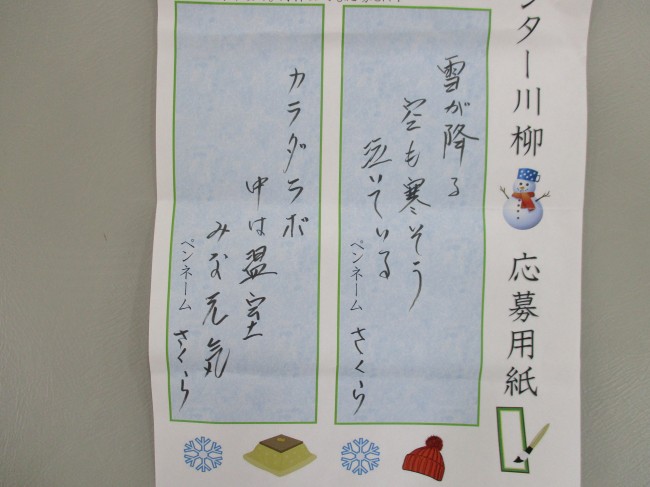 ンター川柳 応募用紙
雪が降る
空も寒そう
泣いている
ペンネーム さくら
カラダラボ
中は温室
みな元気
ペンネーム さくら